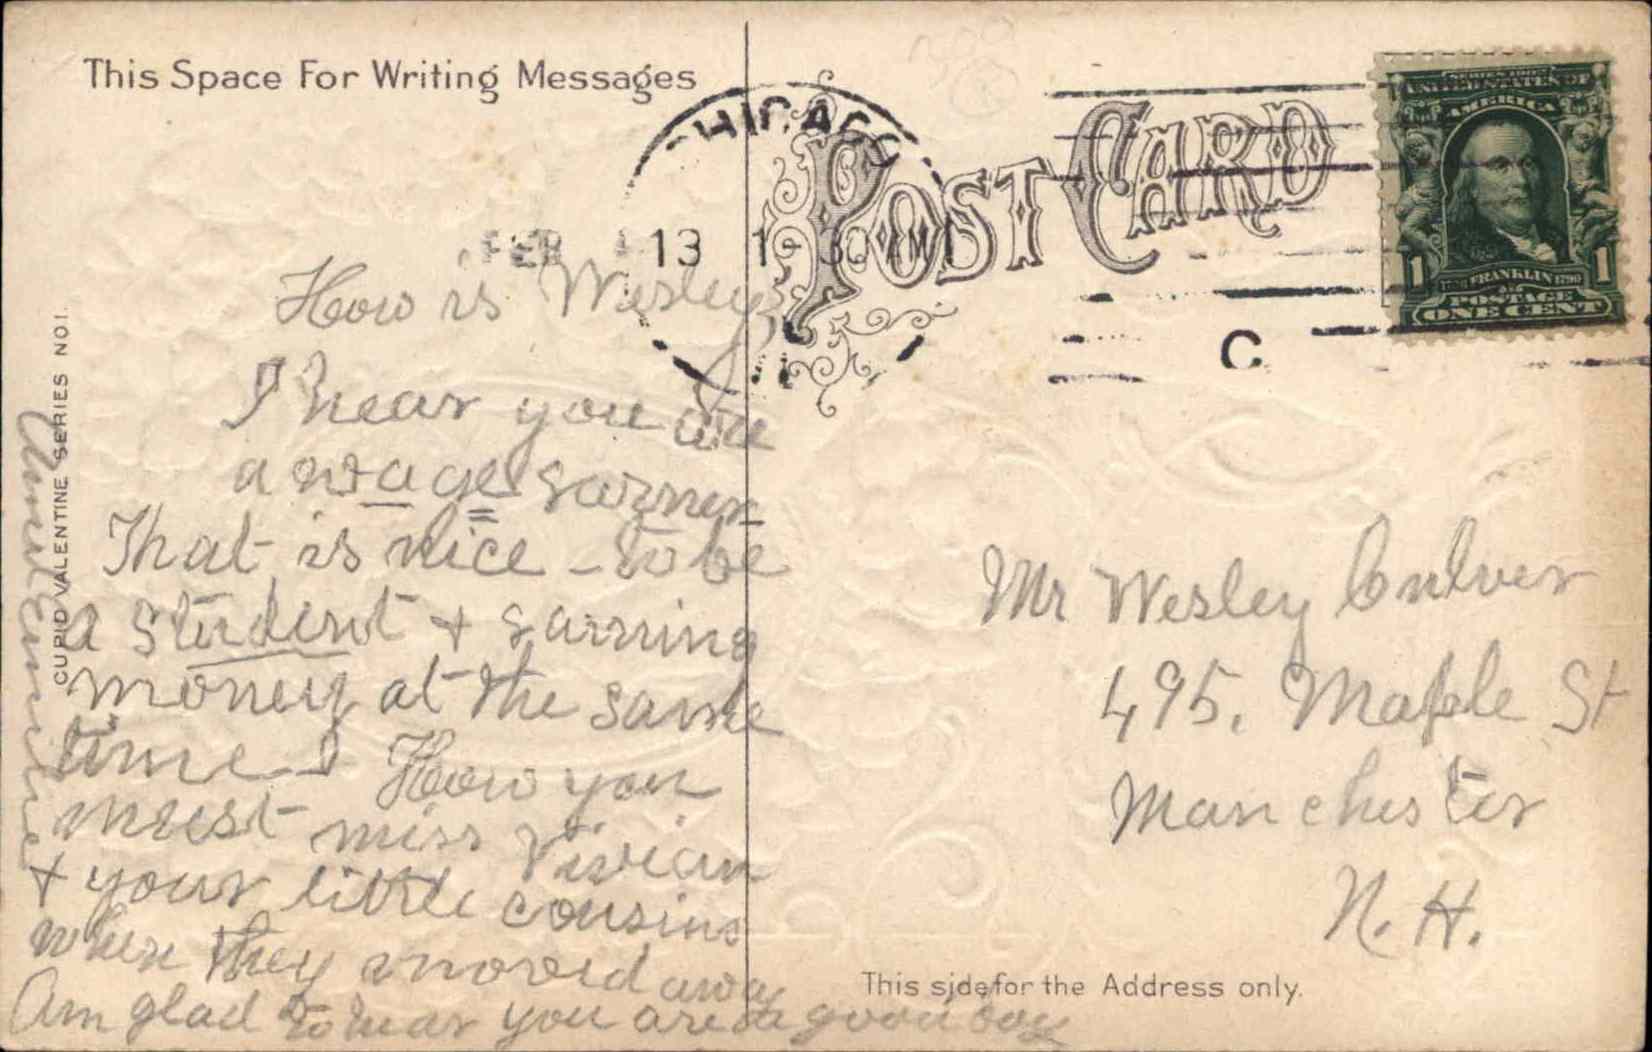 This Space For Writing Messages
CHICAGO
FEB 13 1 30 AM
POST CARD
C
SERIES 1902
UNITED STATES OF
AMERICA
1706 FRANKLIN 1790
1 1
POSTAGE
ONE CENT
How is Wesley,
I hear you are
a wage earner
That is nice - to be
a student + earning
money at the same
time - How you
must miss Vivian
+ your little cousins
when they moved away
Am glad to hear you are a good boy
Aunt Emmine
CUPID VALENTINE SERIES NO 1.
Mr Wesley Culver
495, Maple St
Manchester
N. H.
This side for the Address only.